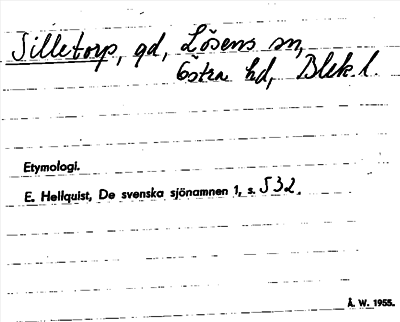 Silletorp, gd, Lösens sn,
Östra hd, Blek. l.
Etymologi.
E. Hellquist, De svenska sjönamnen 1, s. 532.
Å. W. 1955.